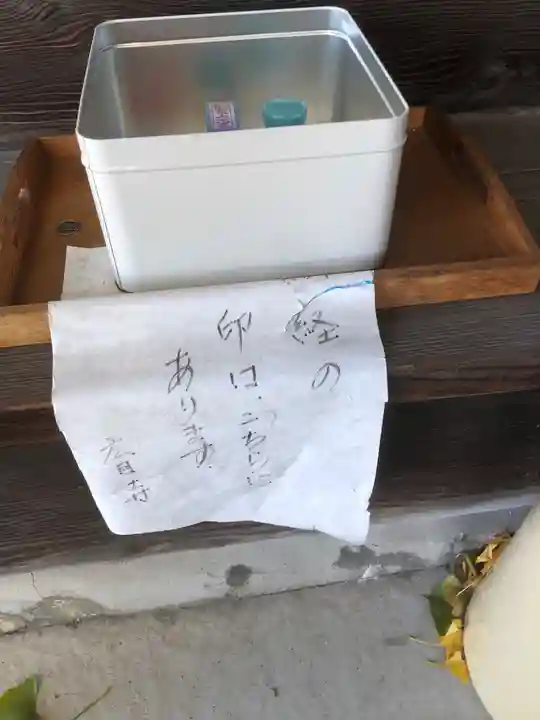 経の
印は、こちらに
あります。
広目寺